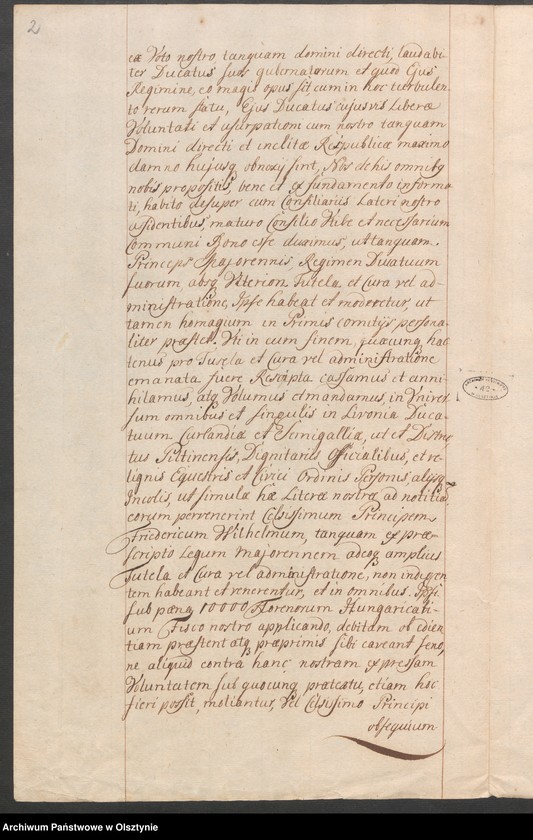 2
ex Voto nostro tanquam domini directi, laudabi-
ter Ducatus suos gubernatorum et quod Ejus
Regimine, eo magis opus sit cum in hoc turbulen-
to rerum statu, Ejus Ducatus cujusvis Liberæ
Voluntati et usurpationi cum nostro tanquam
Domini directi et inclitæ Reipublicæ maximo
damno hujusq obnoxij sint, Nos de his omnibq
nobis propositis, bene et ex fundamento informa
ti, habito desuper cum Consiliarius Lateri nostro
assidentibus, maturo Consilio Utile et necessarium
Communi Bono esse duximus, ut tanquam
Princeps Majorennis, Regimen Ducatuum
suorum, absq Ulteriori Tutela et Cura vel ad-
ministratione, Ipse habeat et moderetur, ut
tamen homagium in Primis comitijs persona-
liter præstet. Uti in eum finem, quæcunq hac
tenus pro Tutela et Cura vel administratione
emanata fuere Rescripta cassamus et anni
hilamus, atq Volumus et mandamus, in Univer
sum omnibus et singulis in Livonia Duca
tuum Curlandiæ et Semigalliæ, ut et Distric
tus Piltinensis, Dignitarijs Officialibus, et re-
liquis Equestris et Civici Ordinis Personis, alijsq
Incolis, ut simulac hæ Literæ nostræ ad notitiam
eorum pervenerint Celsissimum Principem
Fridericum Wilhelmum, tanquam ex præ-
scripto Legum Majorennem adeoq amplius
Tutela et Cura vel administratione, non indigen
tem habeant et venerentur, et in omnibus Ipsi
sub pæna 10000 Florenorum Hungaricali-
um Fisco nostro applicando, debitam obedien
tiam præstent atq præprimis sibi caveant
ne aliquid contra hanc nostram expressam
Voluntatem sub quocunq prætextu, etiam hoc
fieri possit, moliantur, Vel Celsissimo Principi
obsequium
Archiwum Państwowe w Olsztynie